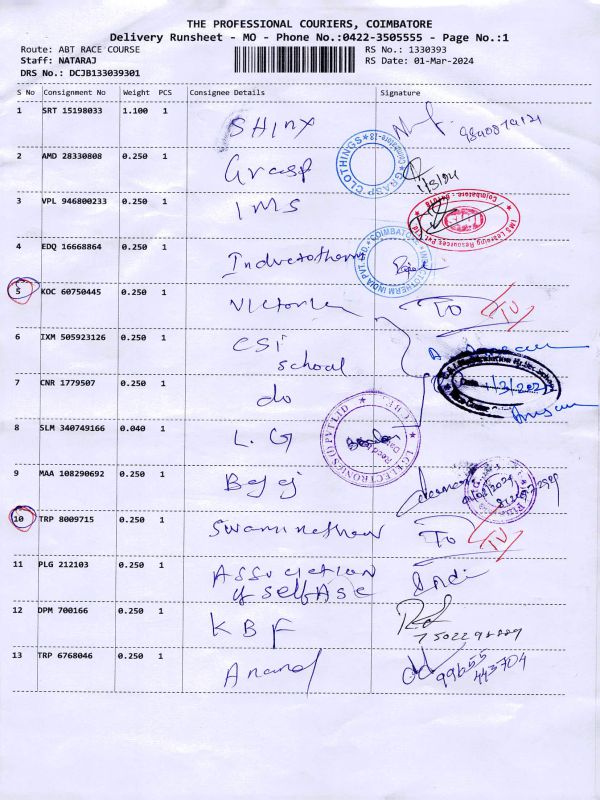 THE PROFESSIONAL COURIERS, COIMBATORE
Delivery Runsheet - MO - Phone No.:0422-3505555 - Page No.:1
Route: ABT RACE COURSE
RS No.: 1330393
Staff: NATARAJ
RS Date: 01-Mar-2024
DRS No.: DCJB133039301
S No Consignment No Weight PCS Consignee Details Signature
1 SRT 15198033 1.100 1 SHinx
2 AMD 28330808 0.250 1 Grasp 1/3/24
GRASP CLOTHINGS * Coimbatore-18 *
3 VPL 946800233 0.250 1 IMS
IMS Learning Resources Pvt Ltd
4 EDQ 16668864 0.250 1 Inductotherm
INDUCTOTHERM INDIA PVT. LTD. * COIMBATORE *
5 KOC 60750445 0.250 1 Victoria TO TU
6 IXM 505923126 0.250 1 CSI
School
7 CNR 1779507 0.250 1 do
Date 1/3/202
8 SLM 340749166 0.040 1 L.G
LG ELECTRONICS (I) PVT LTD
9 MAA 108290692 0.250 1 Bajaj
01/03/2024
10 TRP 8009715 0.250 1 Swaminathan TO TU
11 PLG 212103 0.250 1 Association
of self Ase
12 DPM 700166 0.250 1 KBF
13 TRP 6768046 0.250 1 Anand
99655
443704